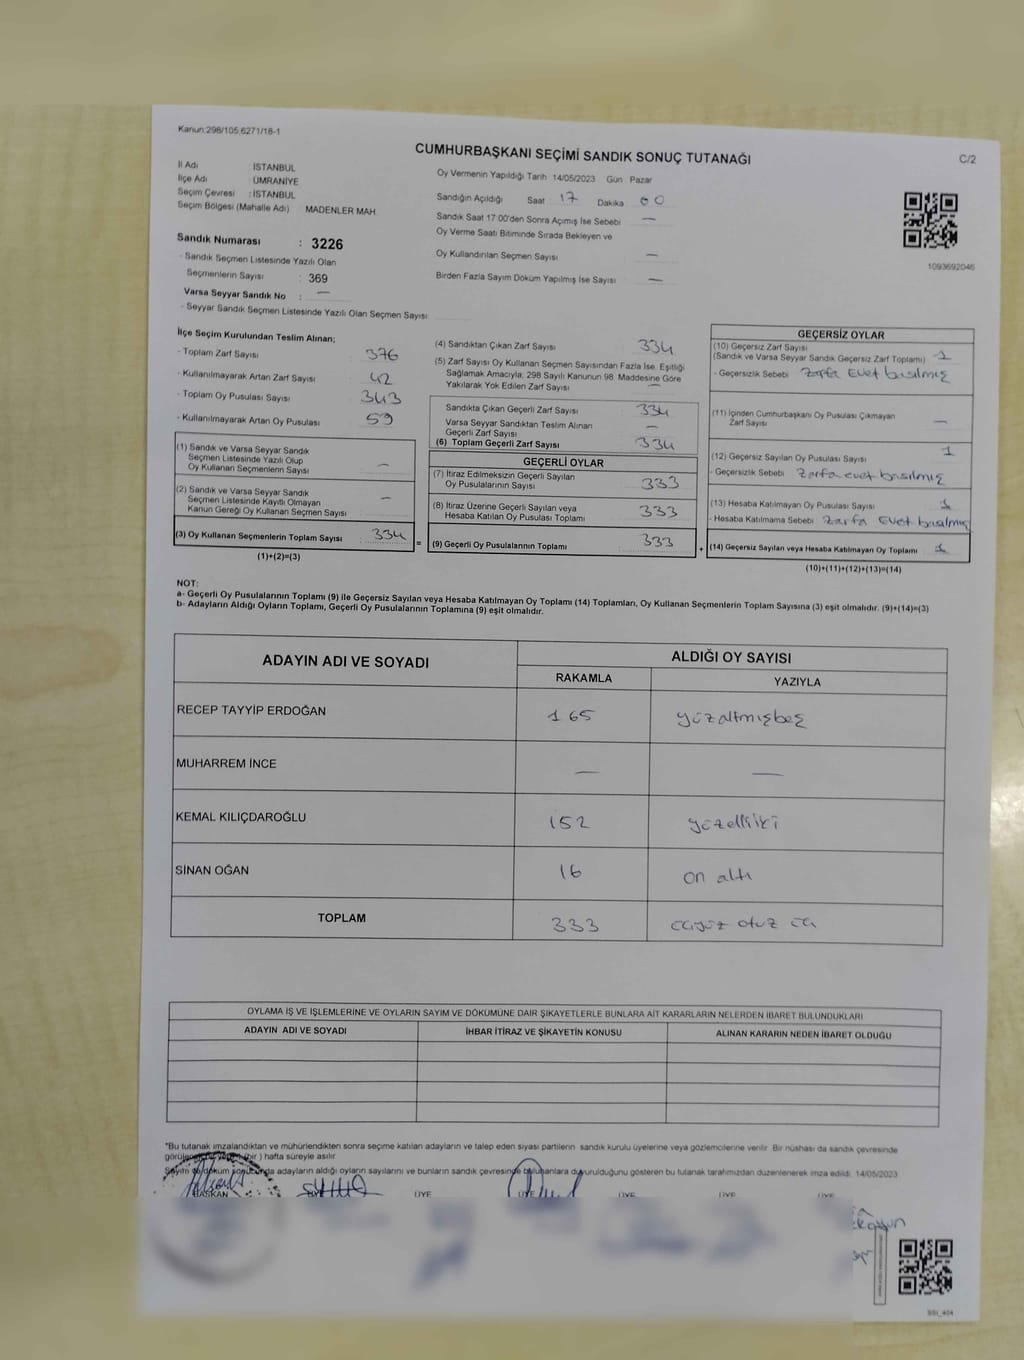 Kanun:298/105,6271/18-1
CUMHURBAŞKANI SEÇİMİ SANDIK SONUÇ TUTANAĞI
C/2
İl Adı : İSTANBUL
İlçe Adı : ÜMRANİYE
Seçim Çevresi : İSTANBUL
Seçim Bölgesi (Mahalle Adı) : MADENLER MAH.
Sandık Numarası : 3226
- Sandık Seçmen Listesinde Yazılı Olan
Seçmenlerin Sayısı : 369
Varsa Seyyar Sandık No : —
- Seyyar Sandık Seçmen Listesinde Yazılı Olan Seçmen Sayısı:
Oy Vermenin Yapıldığı Tarih 14/05/2023 Gün : Pazar
Sandığın Açıldığı Saat 17 Dakika 00
Sandık Saat 17:00'den Sonra Açımış İse Sebebi —
Oy Verme Saati Bitiminde Sırada Bekleyen ve
Oy Kullandırılan Seçmen Sayısı —
Birden Fazla Sayım Döküm Yapılmış İse Sayısı —
1093692046
İlçe Seçim Kurulundan Teslim Alınan;
- Toplam Zarf Sayısı 376
- Kullanılmayarak Artan Zarf Sayısı 42
- Toplam Oy Pusulası Sayısı 343
- Kullanılmayarak Artan Oy Pusulası 59
(1) Sandık ve Varsa Seyyar Sandık
Seçmen Listesinde Yazılı Olup
Oy Kullanan Seçmenlerin Sayısı —
(2) Sandık ve Varsa Seyyar Sandık
Seçmen Listesinde Kayıtlı Olmayan
Kanun Gereği Oy Kullanan Seçmen Sayısı —
(3) Oy Kullanan Seçmenlerin Toplam Sayısı 334
(1)+(2)=(3)
(4) Sandıktan Çıkan Zarf Sayısı 334
(5) Zarf Sayısı Oy Kullanan Seçmen Sayısından Fazla İse, Eşitliği
Sağlamak Amacıyla, 298 Sayılı Kanunun 98. Maddesine Göre
Yakılarak Yok Edilen Zarf Sayısı —
Sandıkta Çıkan Geçerli Zarf Sayısı 334
Varsa Seyyar Sandıktan Teslim Alınan
Geçerli Zarf Sayısı —
(6) Toplam Geçerli Zarf Sayısı 334
GEÇERLİ OYLAR
(7) İtiraz Edilmeksizin Geçerli Sayılan
Oy Pusulalarının Sayısı 333
(8) İtiraz Üzerine Geçerli Sayılan veya
Hesaba Katılan Oy Pusulası Toplamı 333
= (9) Geçerli Oy Pusulalarının Toplamı 333 +
GEÇERSİZ OYLAR
(10) Geçersiz Zarf Sayısı
(Sandık ve Varsa Seyyar Sandık Geçersiz Zarf Toplamı) 1
- Geçersizlik Sebebi Zarfa Evet basılmış
(11) İçinden Cumhurbaşkanı Oy Pusulası Çıkmayan
Zarf Sayısı —
(12) Geçersiz Sayılan Oy Pusulası Sayısı 1
- Geçersizlik Sebebi Zarfa evet basılmış
(13) Hesaba Katılmayan Oy Pusulası Sayısı 1
- Hesaba Katılmama Sebebi Zarfa Evet basılmış
(14) Geçersiz Sayılan veya Hesaba Katılmayan Oy Toplamı 1
(10)+(11)+(12)+(13)=(14)
NOT:
a- Geçerli Oy Pusulalarının Toplamı (9) ile Geçersiz Sayılan veya Hesaba Katılmayan Oy Toplamı (14) Toplamları, Oy Kullanan Seçmenlerin Toplam Sayısına (3) eşit olmalıdır. (9)+(14)=(3)
b- Adayların Aldığı Oyların Toplamı, Geçerli Oy Pusulalarının Toplamına (9) eşit olmalıdır.
ADAYIN ADI VE SOYADI
ALDIĞI OY SAYISI
RAKAMLA YAZIYLA
RECEP TAYYİP ERDOĞAN 165 yüzaltmışbeş
MUHARREM İNCE — —
KEMAL KILIÇDAROĞLU 152 yüzelliiki
SİNAN OĞAN 16 on altı
TOPLAM 333 üçyüz otuz üç
OYLAMA İŞ VE İŞLEMLERİNE VE OYLARIN SAYIM VE DÖKÜMÜNE DAİR ŞİKAYETLERLE BUNLARA AİT KARARLARIN NELERDEN İBARET BULUNDUKLARI
ADAYIN ADI VE SOYADI İHBAR İTİRAZ VE ŞİKAYETİN KONUSU ALINAN KARARIN NEDEN İBARET OLDUĞU
*Bu tutanak imzalandıktan ve mühürlendikten sonra seçime katılan adayların ve talep eden siyasi partilerin sandık kurulu üyelerine veya gözlemcilerine verilir. Bir nüshası da sandık çevresinde
(bir) hafta süreyle asılır.
Sayım adayların aldığı oyların sayılarını ve bunların sandık çevresinde duyurulduğunu gösteren bu tutanak tarafımızdan düzenlenerek imza edildi. 14/05/2023
BAŞKAN ÜYE ÜYE ÜYE ÜYE